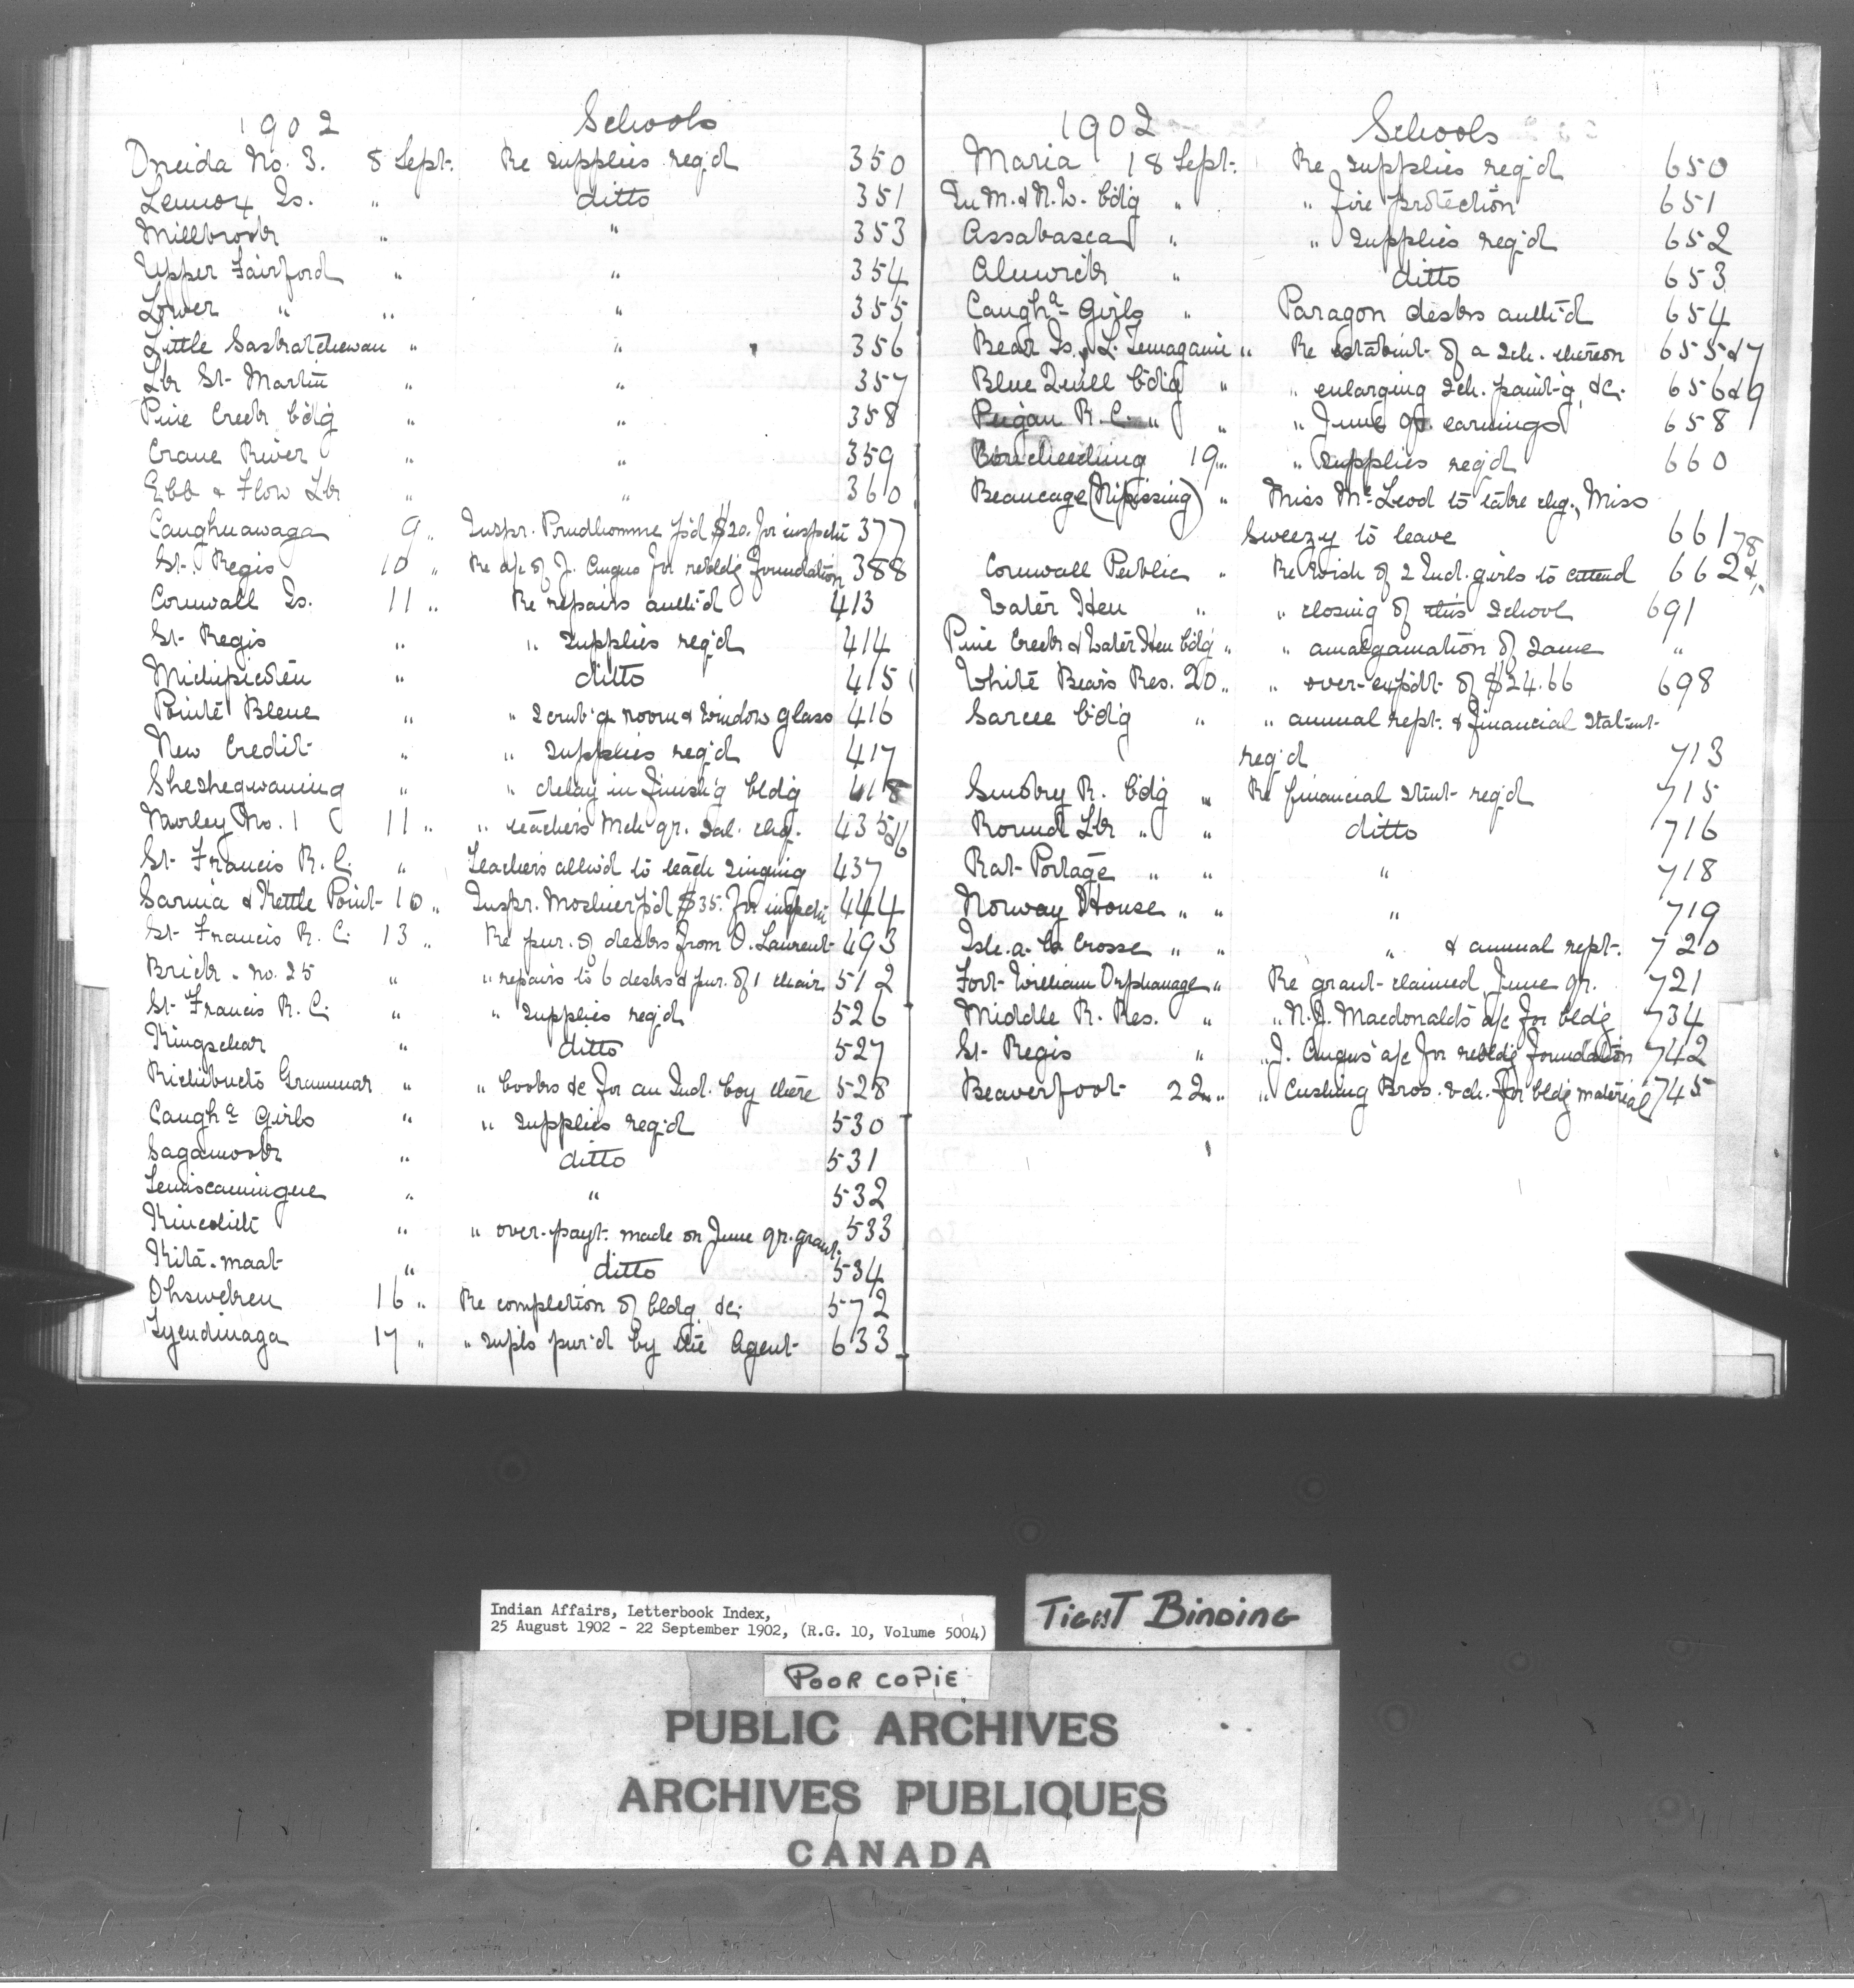 1902 Schools
Oneida No. 3. 8 Sept. Re supplies req'd 350
Lennox Is. " ditto 351
Millbrook " " 353
Upper Fairford " " 354
Lower " " " 355
Little Saskatchewan " " 356
Lk St. Martin " " 357
Pine Creek b'd'g " " 358
Crane River " " 359
Ebb & Flow Lk " " 360
Caughnawaga 9 " Inspr. Prudhomme p'd $20. for inspectn 377
St. Regis 10 " Re a/c of J. Angus for rebldg foundation 388
Cornwall Is. 11 " Re repairs auth'd 413
St. Regis " " supplies req'd 414
Michipicoten " ditto 415
Pointe Bleue " " scrub'g room & window glass 416
New Credit " " supplies req'd 417
Sheshegwaning " " delay in finish'g bldg 418
Morley No. 1 11 " " teacher's Mch qr. sal. chq. 435&6
St. Francis R. C. " Teachers allw'd to teach singing 437
Sarnia & Kettle Point 10 " Inspr. Moshier p'd $35. for inspectn 444
St. Francis R. C. 13 " Re pur. of desks from O. Laurent 493
Brick. No. 25 " " repairs to 6 desks & pur. of 1 chair 512
St. Francis R. C. " " supplies req'd 526
Kingsclear " ditto 527
Richibucto Grammar " " books &c for an Ind. boy there 528
Caugha Girls " " supplies req'd 530
Sagamook " ditto 531
Temiscamingue " " 532
Kincolith " " over-payt. made on June qr. grant. 533
Kita-maat " ditto 534
Ohsweken 16 " Re completion of bldg &c. 572
Tyendinaga 17 " " supls pur'd by the Agent 633
1902 Schools
Maria 18 Sept. Re supplies req'd 650
In M. & N. W. b'd'g " " fire protection 651
Assabasca " " supplies req'd 652
Alnwick " ditto 653
Caugha Girls " Paragon desks auth'd 654
Bear Is., L. Temagami " Re estabmt. of a sch. thereon 655&7
Blue Quill b'd'g " " enlarging sch. paint'g, &c. 656&9
Peigan R. C. " " " June qr. earnings 658
19 " " supplies req'd 660
Beaucage (Nipissing) " Miss McLeod to take chg., Miss
Sweezy to leave 661
Cornwall Public " Re wish of 2 Ind. girls to attend 662&78
Water Hen " " closing of this school 691
Pine Creek & Water Hen b'd'g " " amalgamation of same "
White Bear's Res. 20 " " over-expdt. of $24.66 698
Sarcee b'd'g " " annual rept. & financial statmt
req'd 713
R. b'd'g " Re financial stmt. req'd 715
Round Lk " " ditto 716
Rat Portage " " " 718
Norway House " " " 719
Isle-a-la Crosse " " " & annual rept. 720
Fort William Orphanage " Re grant claimed, June qr. 721
Middle R. Res. " " N. J. Macdonald's a/c for bldg 734
St. Regis " " J. Angus' a/c for rebldg foundation 742
Beaverfoot 22 " " Cushing Bros. for bldg material 745
Indian Affairs, Letterbook Index,
25 August 1902 - 22 September 1902, (R.G. 10, Volume 5004)
TIGHT BINDING
POOR COPIE
PUBLIC ARCHIVES
ARCHIVES PUBLIQUES
CANADA